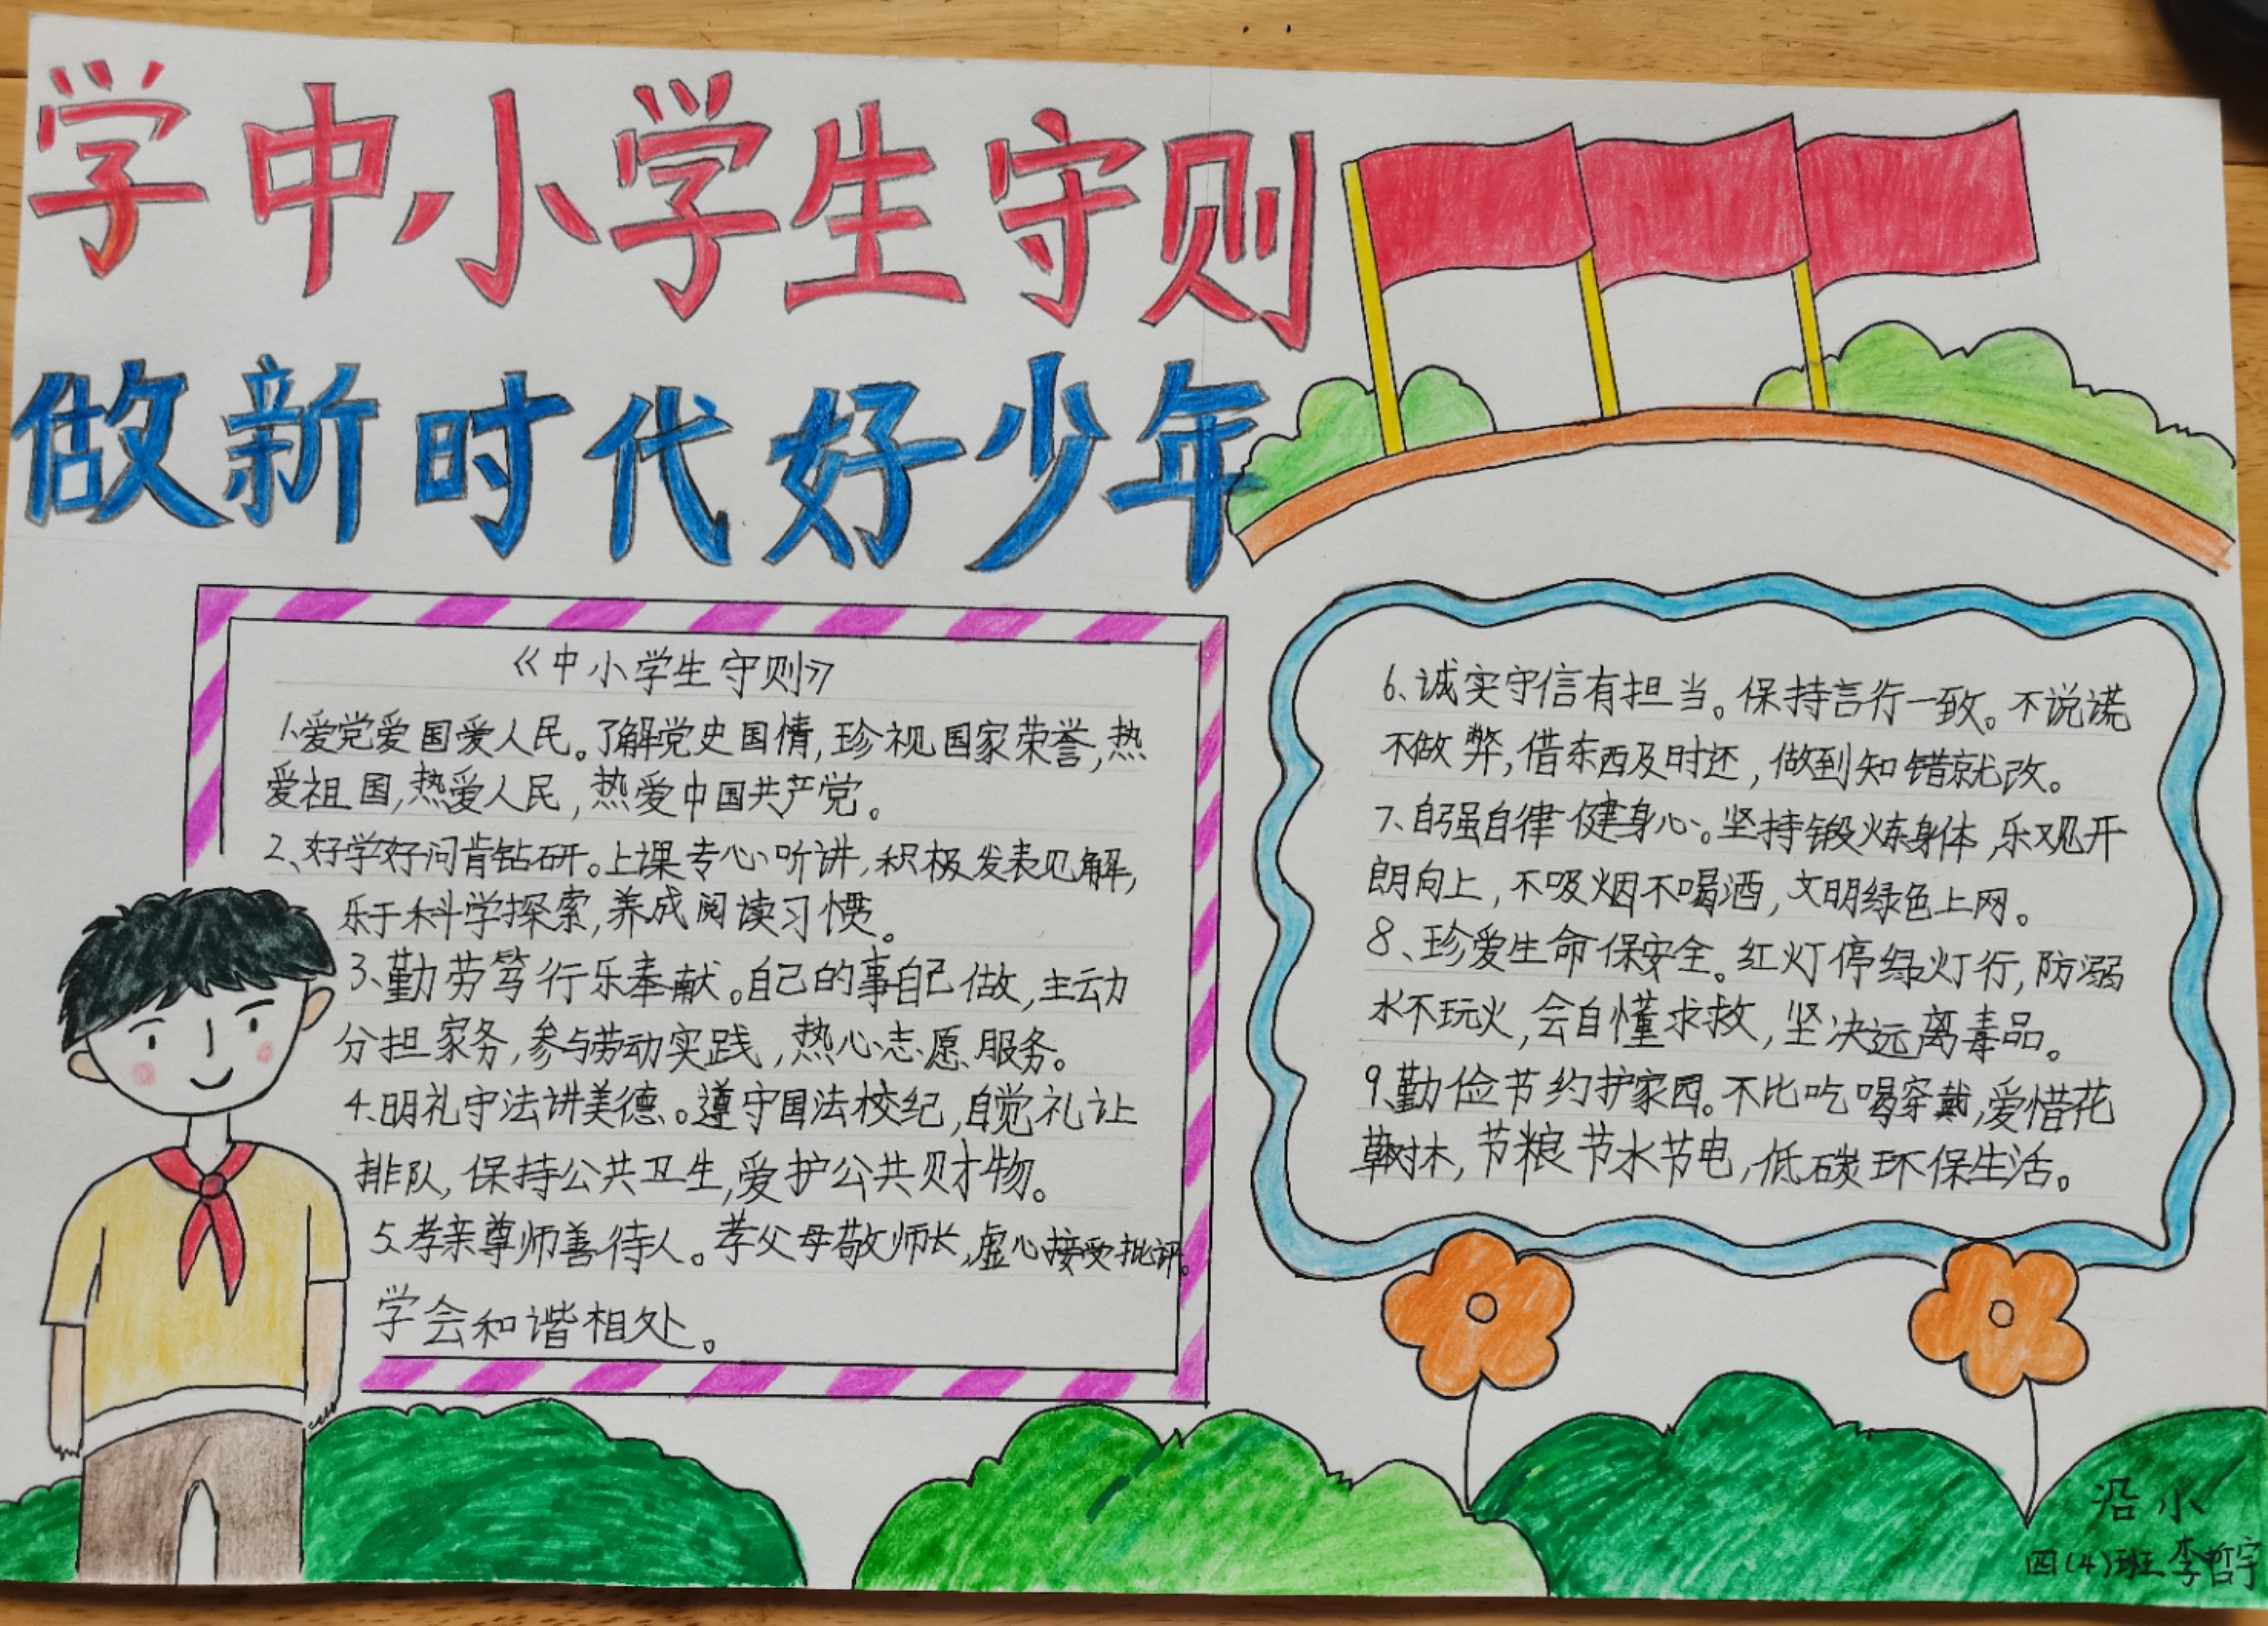 学中小学生守则
做新时代好少年
《中小学生守则》
1、爱党爱国爱人民。了解党史国情,珍视国家荣誉,热
爱祖国,热爱人民,热爱中国共产党。
2、好学好问肯钻研。上课专心听讲,积极发表见解,
乐于科学探索,养成阅读习惯。
3、勤劳笃行乐奉献。自己的事自己做,主动
分担家务,参与劳动实践,热心志愿服务。
4、明礼守法讲美德。遵守国法校纪,自觉礼让
排队,保持公共卫生,爱护公共财物。
5、孝亲尊师善待人。孝父母敬师长,虚心接受批评。
学会和谐相处。
6、诚实守信有担当。保持言行一致。不说谎
不做弊,借东西及时还,做到知错就改。
7、自强自律健身心。坚持锻炼身体,乐观开
朗向上,不吸烟不喝酒,文明绿色上网。
8、珍爱生命保安全。红灯停绿灯行,防溺
水不玩火,会自懂求救,坚决远离毒品。
9、勤俭节约护家园。不比吃喝穿戴,爱惜花
草树木,节粮节水节电,低碳环保生活。
沿小
四(4)班李哲宇